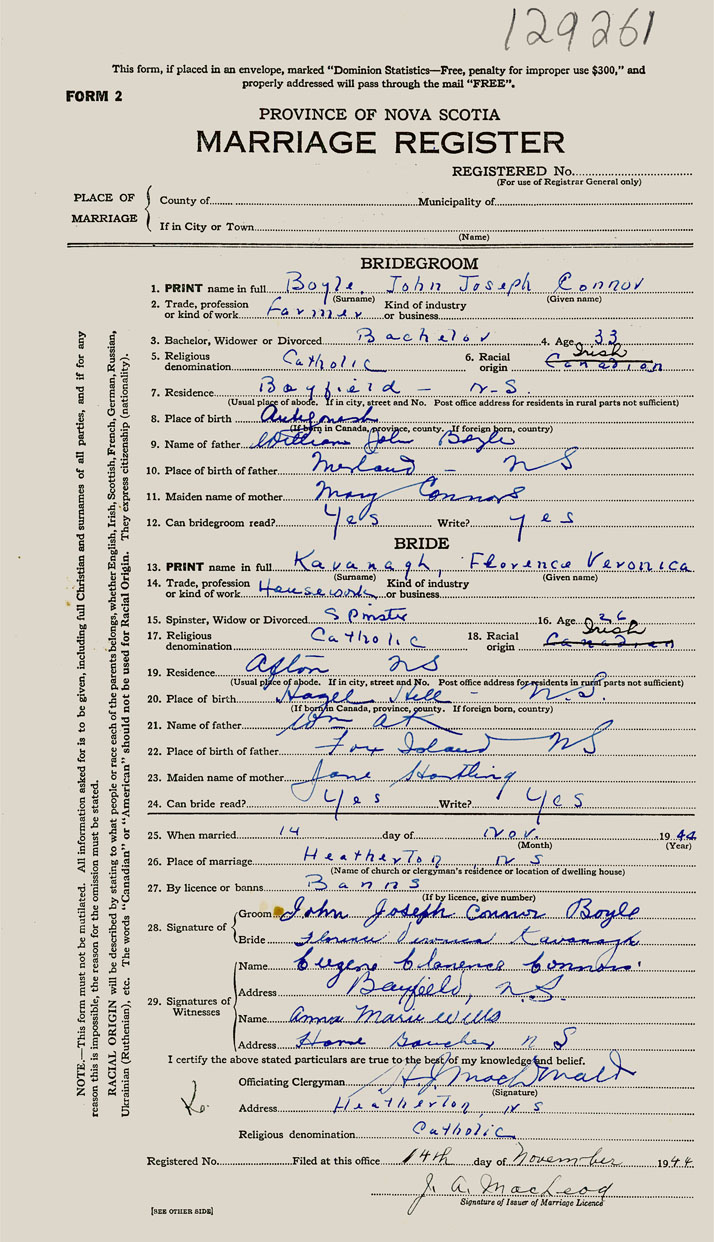 129261
This form, if placed in an envelope, marked "Dominion Statistics—Free, penalty for improper use $300," and
properly addressed will pass through the mail "FREE".
FORM 2
PROVINCE OF NOVA SCOTIA
MARRIAGE REGISTER
REGISTERED No.
(For use of Registrar General only)
PLACE OF MARRIAGE
County of Municipality of
If in City or Town
(Name)
BRIDEGROOM
1. PRINT name in full Boyle, John Joseph Connor
(Surname) (Given name)
2. Trade, profession or kind of work Farmer Kind of industry or business
3. Bachelor, Widower or Divorced Bachelor 4. Age 33
5. Religious denomination Catholic 6. Racial origin Irish Canadian
7. Residence Bayfield - N-S.
(Usual place of abode. If in city, street and No. Post office address for residents in rural parts not sufficient)
8. Place of birth Antigonish
(If born in Canada, province, county. If foreign born, country)
9. Name of father William John Boyle
10. Place of birth of father Merland - NS
11. Maiden name of mother Mary Connors
12. Can bridegroom read? Yes Write? yes
BRIDE
13. PRINT name in full Kavanagh, Florence Veronica
(Surname) (Given name)
14. Trade, profession or kind of work Housework Kind of industry or business
15. Spinster, Widow or Divorced Spinster 16. Age 26
17. Religious denomination Catholic 18. Racial origin Irish Canadian
19. Residence Afton NS
(Usual place of abode. If in city, street and No. Post office address for residents in rural parts not sufficient)
20. Place of birth Hazel Hill - N.S.
(If born in Canada, province, county. If foreign born, country)
21. Name of father Wm
22. Place of birth of father Fox Island NS
23. Maiden name of mother Jane Hartling
24. Can bride read? Yes Write? Yes
25. When married 14 day of Nov. 1944
(Month) (Year)
26. Place of marriage Heatherton, NS
(Name of church or clergyman's residence or location of dwelling house)
27. By licence or banns Banns
(If by licence, give number)
28. Signature of
Groom John Joseph Connor Boyle
Bride Florence Veronica Kavanagh
29. Signatures of Witnesses
Name Eugene Clarence Connors
Address Bayfield, N.S.
Name Anna Marie Wills
Address Havre Boucher N S
I certify the above stated particulars are true to the best of my knowledge and belief.
Officiating Clergyman H. J. MacDonald
(Signature)
Address Heatherton, NS
Religious denomination Catholic
Registered No. Filed at this office 14th day of November 1944
J. A. MacLeod
Signature of Issuer of Marriage Licence
[SEE OTHER SIDE]
NOTE.—This form must not be mutilated. All information asked for is to be given, including full Christian and surnames of all parties, and if for any
reason this is impossible, the reason for the omission must be stated.
RACIAL ORIGIN will be described by stating to what people or race each of the parents belongs, whether English, Irish, Scottish, French, German, Russian,
Ukrainian (Ruthenian), etc. The words "Canadian" or "American" should not be used for Racial Origin. They express citizenship (nationality).